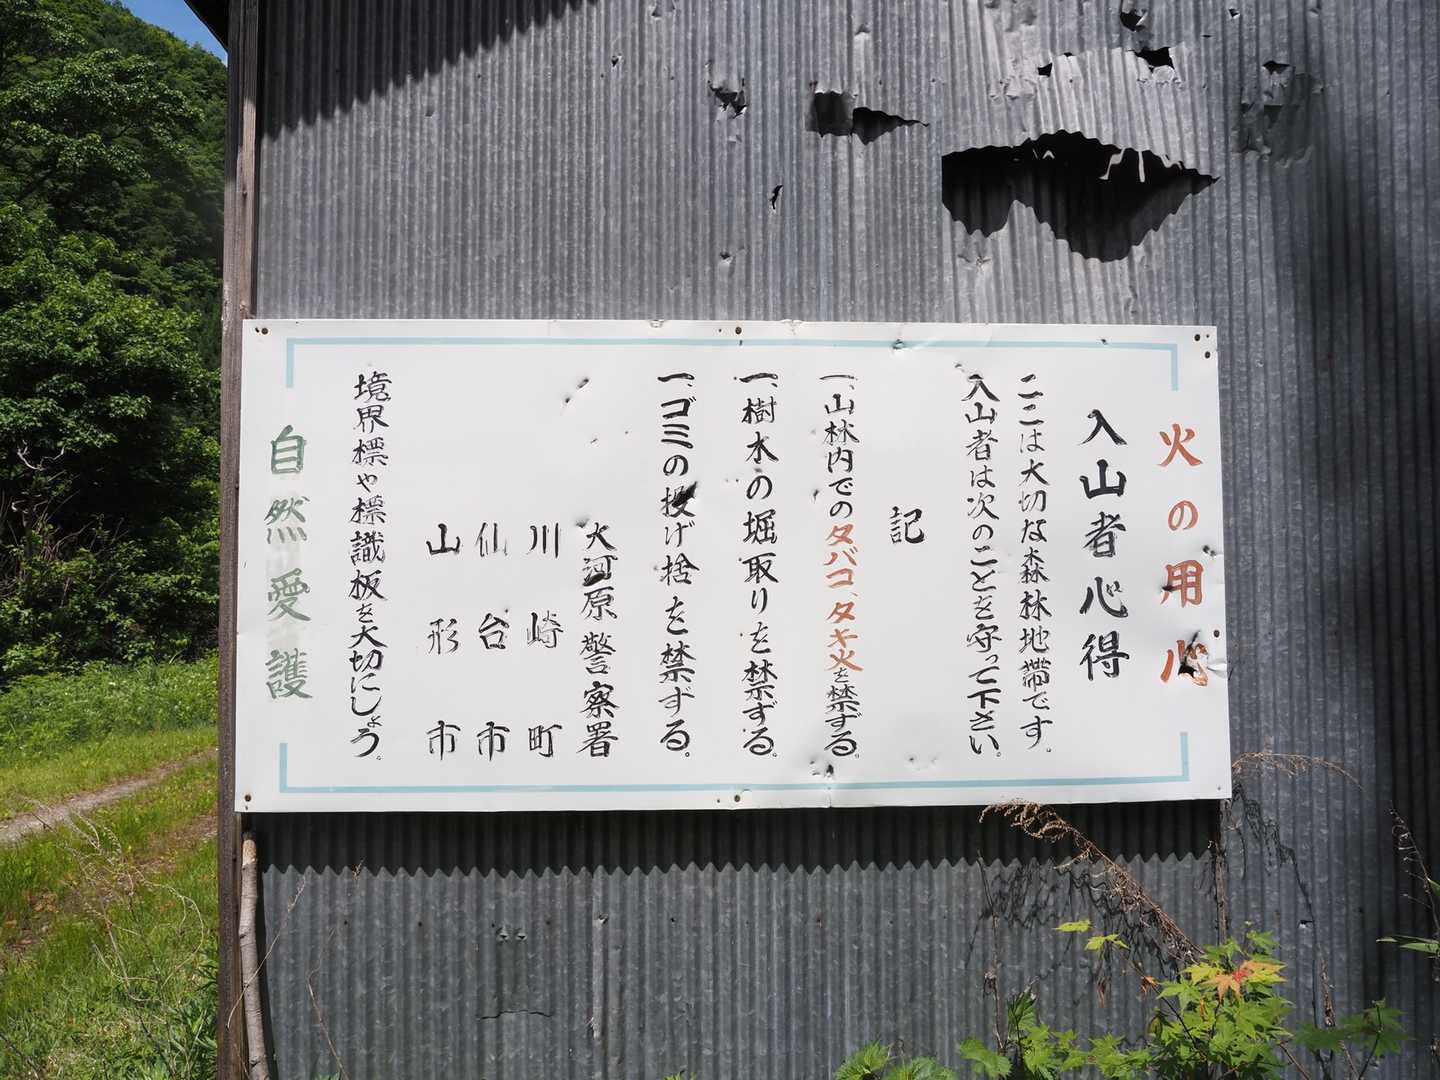 火の用心
入山者心得
ここは大切な森林地帯です。
入山者は次のことを守って下さい。
記
一、山林内でのタバコ、タキ火を禁ずる。
一、樹木の堀取りを禁ずる。
一、ゴミの投げ捨を禁ずる。
大河原警察署
川崎町
仙台市
山形市
境界標や標識板を大切にしょう。
自然愛護